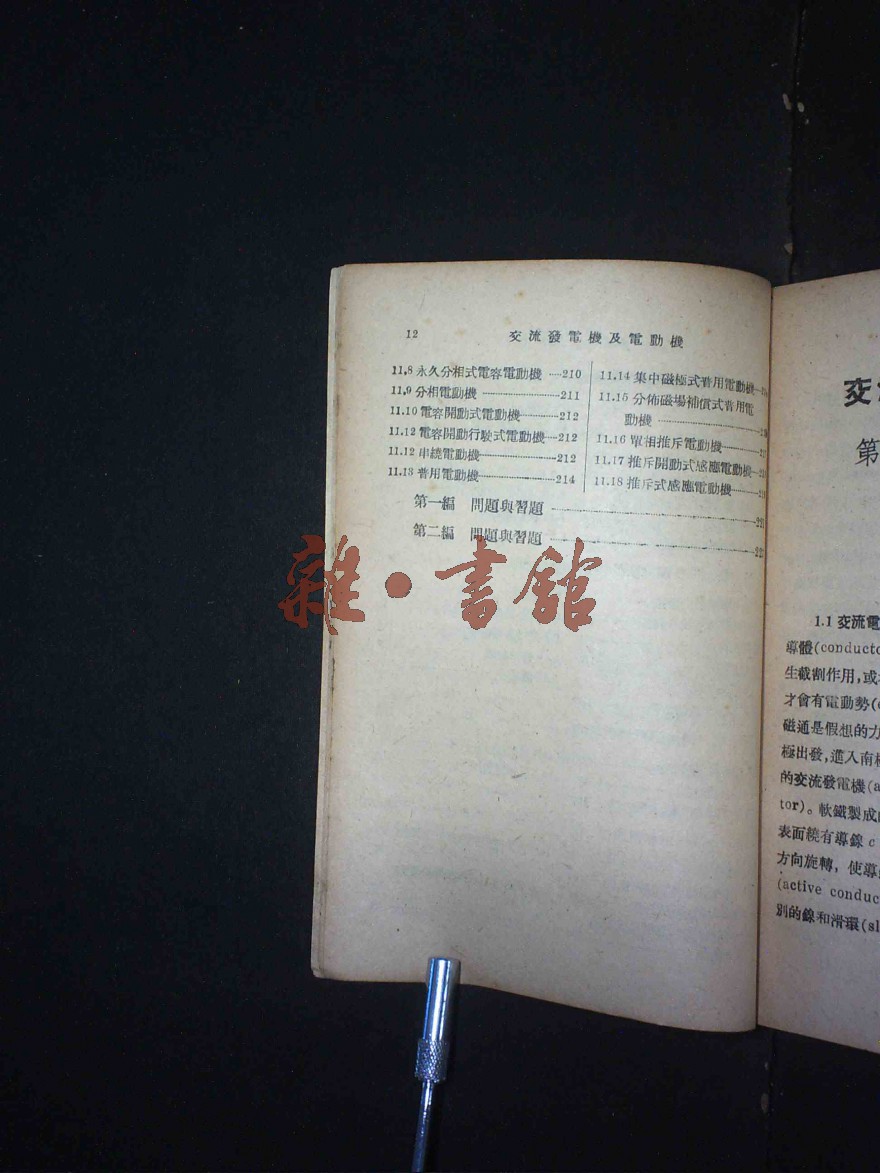 12 交流發電機及電動機
11.8 永久分相式電容電動機 ----210
11.9 分相電動機 ----211
11.10 電容開動式電動機 ----212
11.12 電容開動行駛式電動機 ----212
11.12 串繞電動機 ----212
11.13 普用電動機 ----214
11.14 集中磁極式普用電動機
11.15 分佈磁場補償式普用電
動機
11.16 單相推斥電動機
11.17 推斥開動式感應電動機
11.18 推斥式感應電動機
第一編 問題與習題
第二編 問題與習題
雜·書館
交
第
1.1 交流電
導體(conducto
生截割作用,或
才會有電動勢(
磁通是假想的力
極出發,進入南
的交流發電機(a
tor)。軟鐵製成
表面繞有導線 c
方向旋轉, 使導
(active conduc
別的線和滑環(sl